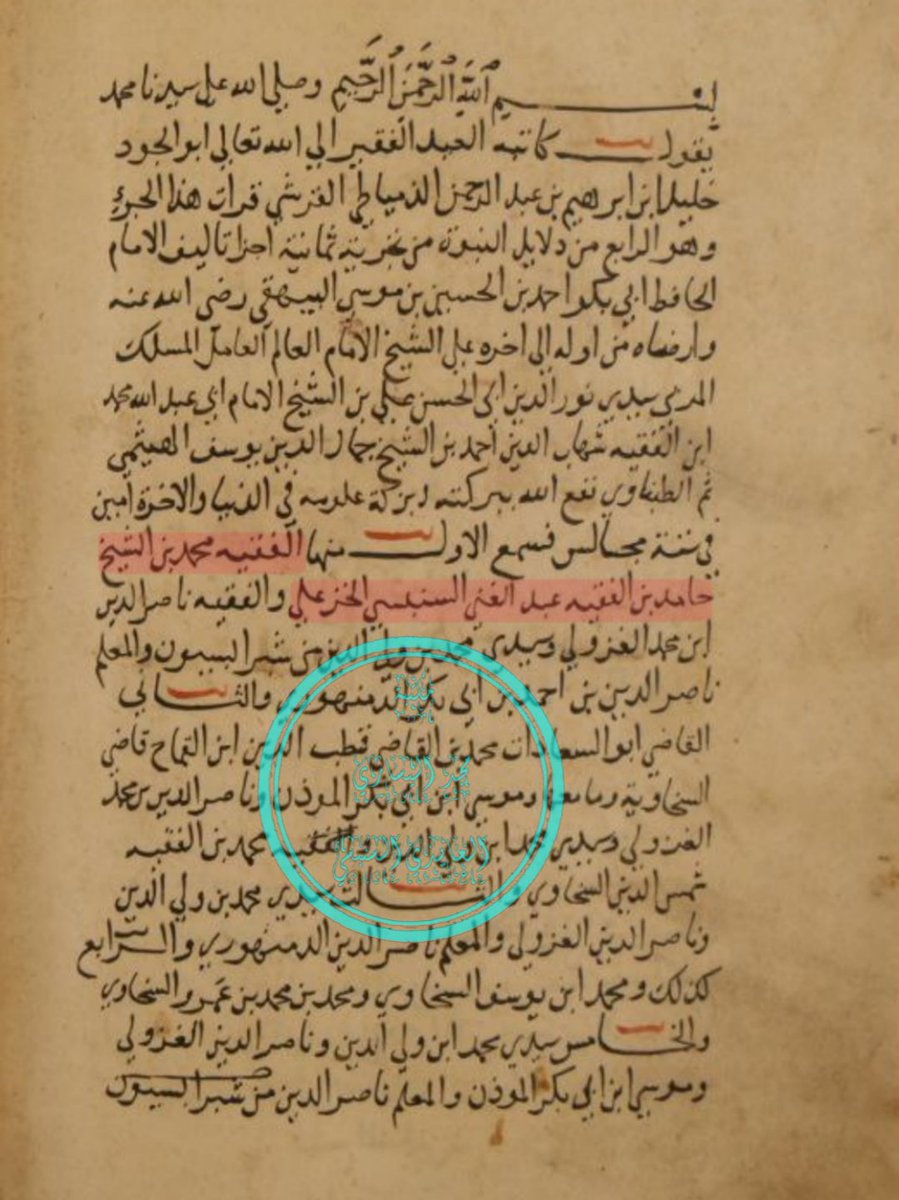 بسم الله الرحمن الرحيم وصلي الله علي سيدنا محمد
يقول كاتبه العبد الفقير الي الله تعالي ابو الجود
خليل ابن ابرهيم بن عبد الرحمن الدمياطي القرشي قرات هذا الجزء
وهو الرابع من دلايل النبوة من تجزية ثمانية اجزا تاليف الامام
الحافظ ابي بكر احمد بن الحسين بن موسي البيهقي رضي الله عنه
وارضاه من اوله الي اخره علي الشيخ الامام العالم العامل المسلك
المربي سيدي نور الدين ابي الحسن علي بن الشيخ الامام ابي عبد الله محمد
ابن الفقيه شهاب الدين احمد بن الشيخ جمال الدين يوسف الهيثمي
ثم الطبناوي نفع الله ببركته وبركة علومه في الدنيا والاخرة امين
في ستة مجالس فسمع الاول منها الفقيه محمد بن الشيخ
حامد بن الفقيه عبد الغني السنبسي الخزعلي والفقيه ناصر الدين
ابن محمد الغزولي وسيدي محمد بن ولي الدين من شبرا بسيون والمعلم
ناصر الدين بن احمد بن ابي بكر الدمنهوري والثاني
القاضي ابو السعادات محمد بن القاضي قطب الدين ابن القماح قاضي
السخاوية وما معها وموسي ابن ابي بكر الموذن وناصر الدين بن محمد
الغزولي وسيدي محمد ابن ولي الدين والفقيه محمد بن الفقيه
شمس الدين السخاوي والثالث سيدي محمد بن ولي الدين
وناصر الدين الغزولي والمعلم ناصر الدين الدمنهوري والرابع
كذلك ومحمد ابن يوسف السخاوي ومحمد بن محمد بن عمر والسخاوي
والخامس سيدي محمد ابن ولي الدين وناصر الدين الغزولي
وموسي ابن ابي بكر الموذن والمعلم ناصر الدين من شبرا بسيون